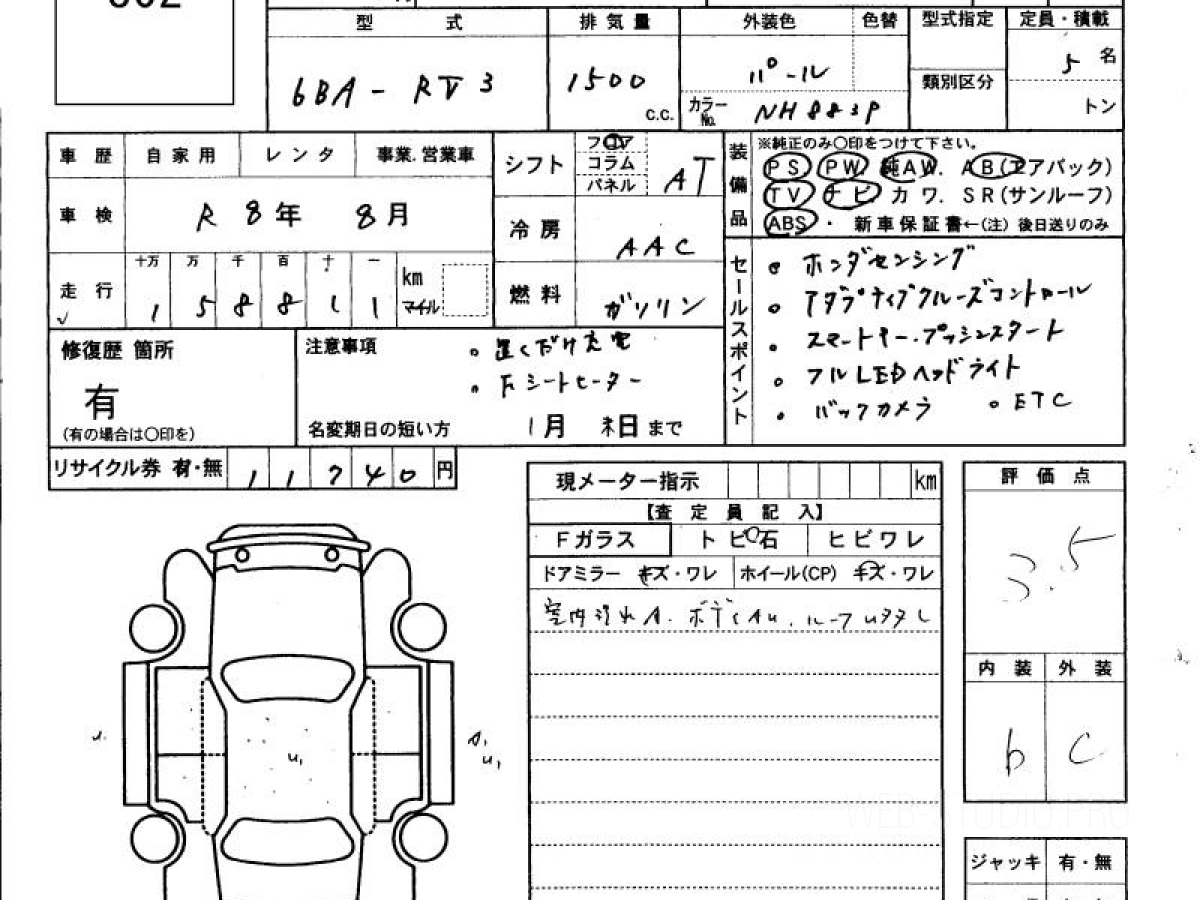 型 式 排気量 外装色 色替 型式指定 定員・積載
6BA-RV3 1500 c.c. パール 5名
カラーNo. NH883P 類別区分 トン
車歴 自家用 レンタ 事業.営業車
シフト フロア コラム パネル AT
装備品 ※純正のみ〇印をつけて下さい。
PS PW. 純AW. AB(エアバック)
TV ナビ カワ. SR(サンルーフ)
ABS ・ 新車保証書←(注) 後日送りのみ
車検 R8年 8月
冷房 AAC
走行 十万 万 千 百 十 一
158811 km マイル
燃料 ガソリン
セールスポイント
・ホンダセンシング
・アダプティブクルーズコントロール
・スマートキー・プッシュスタート
・フルLEDヘッドライト
・バックカメラ ・ETC
修復歴 箇所
有
(有の場合は〇印を)
注意事項
・置くだけ充電
・Fシートヒーター
名変期日の短い方 1月 末日まで
リサイクル券 有・無 11740円
現メーター指示 km
【査定員記入】
Fガラス トビ石 ヒビワレ
ドアミラー キズ・ワレ ホイール(CP) キズ・ワレ
室内汚れA. ボディAU.
評価点
3.5
内装 外装
b C
U.
U1
A1
U1
ジャッキ 有・無